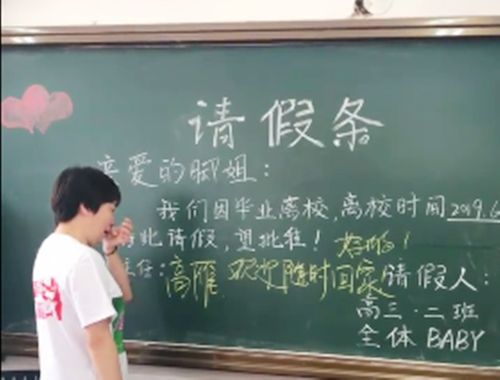 请假条
亲爱的脚姐：
我们因毕业离校，离校时间2019.6
此请假，望批准！好的！
主任：高雁 欢迎随时回家 请假人：
高三·二班
全体BABY